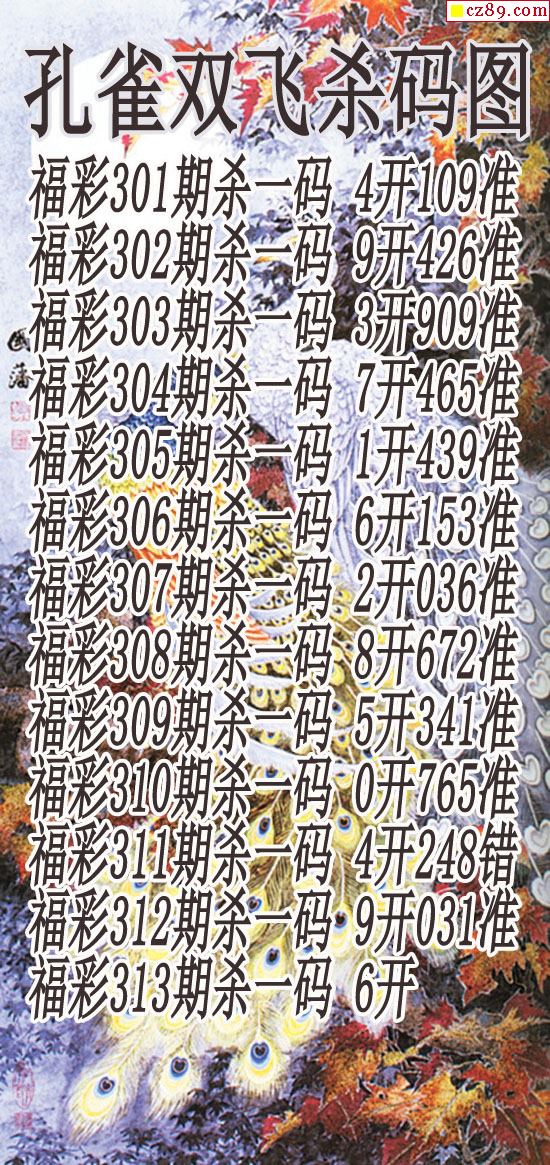 cz89.com
孔雀双飞杀码图
福彩301期杀一码 4开109准
福彩302期杀一码 9开426准
福彩303期杀一码 3开909准
福彩304期杀一码 7开465准
福彩305期杀一码 1开439准
福彩306期杀一码 6开153准
福彩307期杀一码 2开036准
福彩308期杀一码 8开672准
福彩309期杀一码 5开341准
福彩310期杀一码 0开765准
福彩311期杀一码 4开248错
福彩312期杀一码 9开031准
福彩313期杀一码 6开